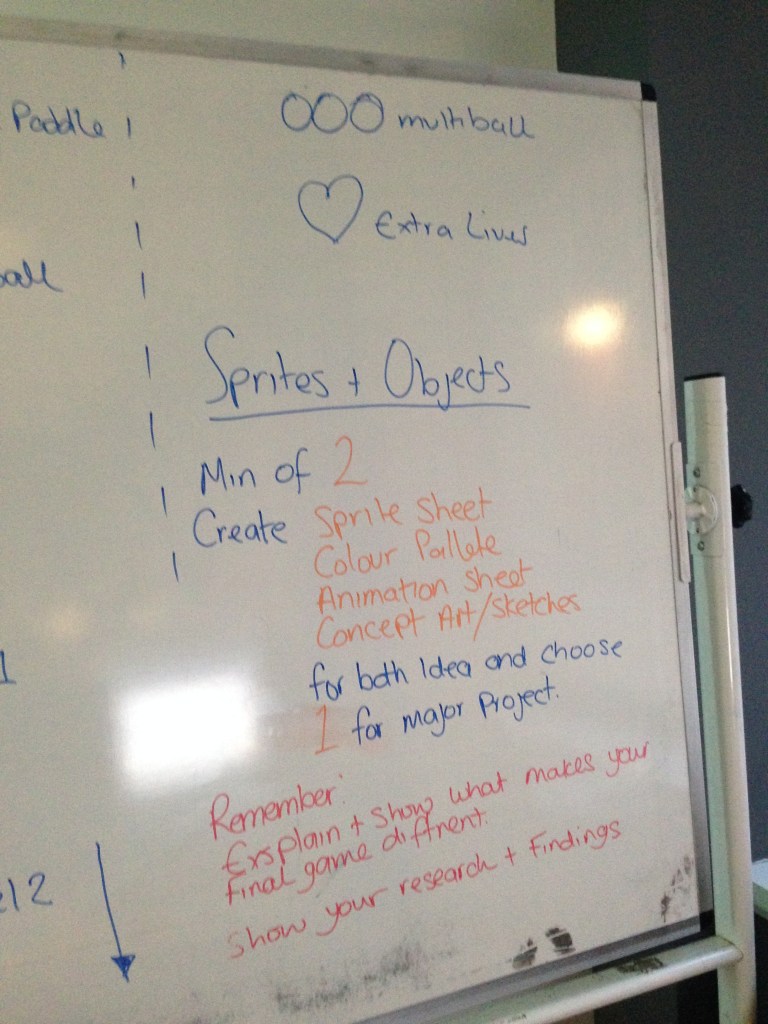 Paddle
OOO multiball
Extra Lives
Sprites + Objects
Min of 2
Create Sprite Sheet
Colour Pallete
Animation Sheet
Concept Art/Sketches
for both Idea and choose
1 for major Project.
Remember:
Exsplain + show what makes your
final game diffrent.
show your research + Findings